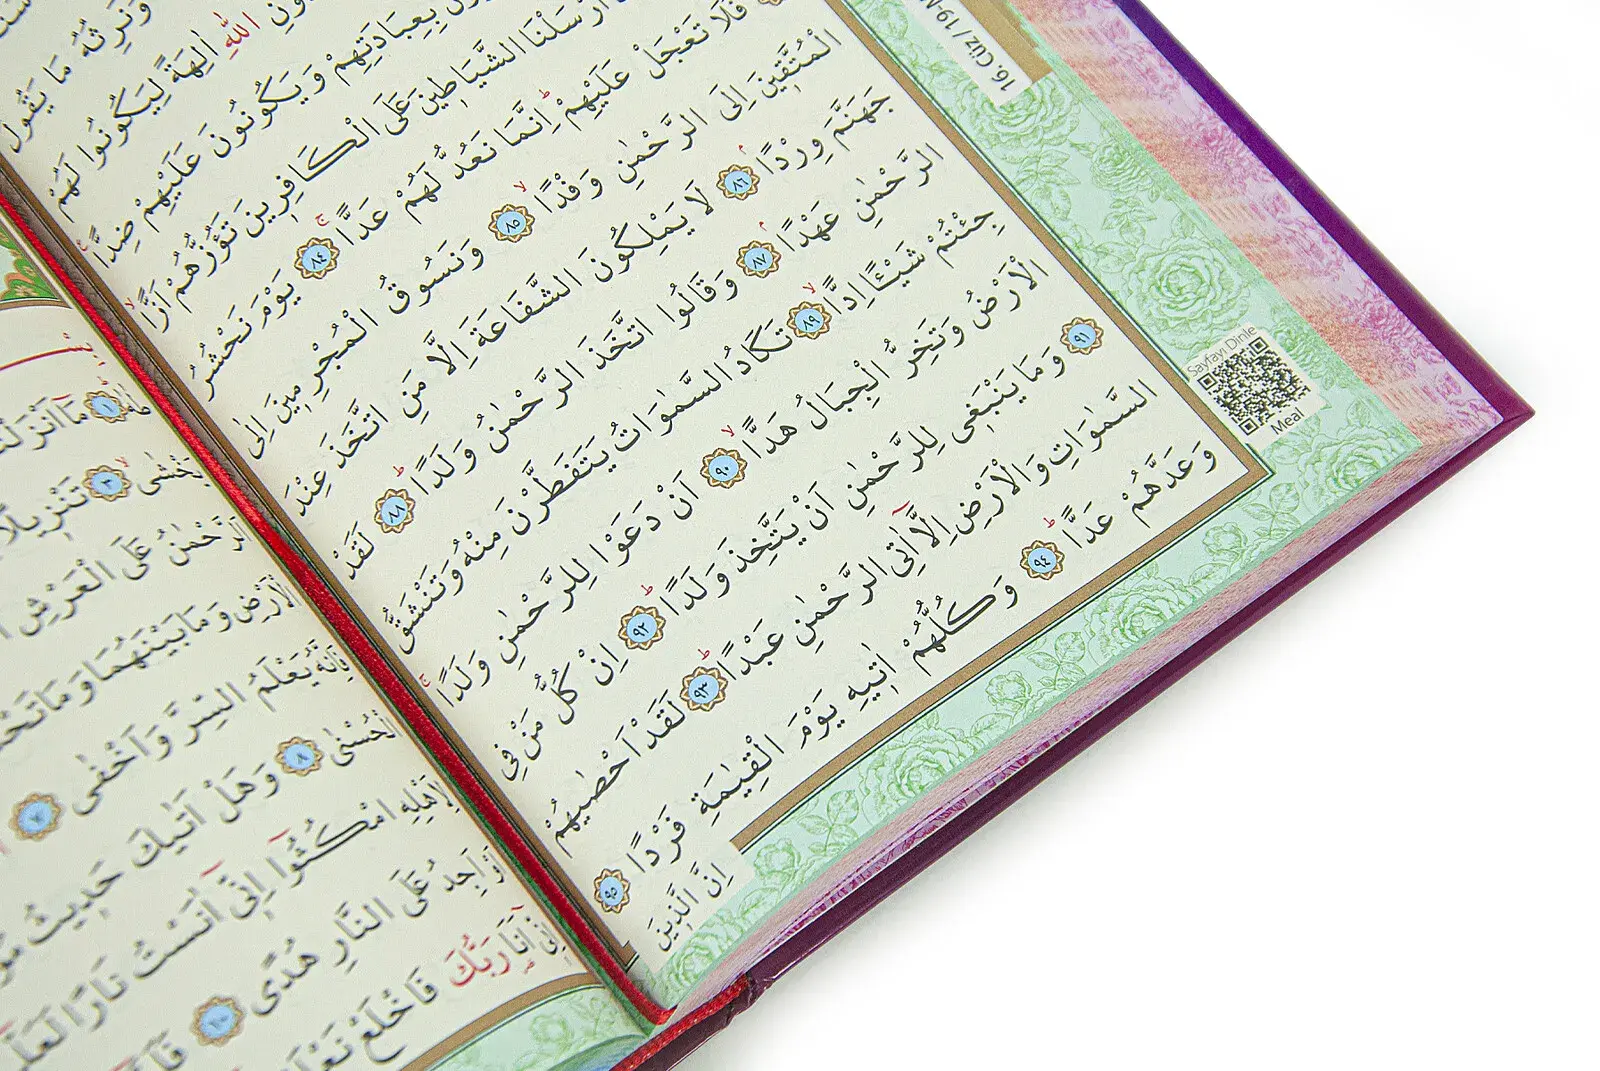 16. Cüz / 19-M
وَنَرِثُهُ مَا يَقُولُ
اللّٰهِ اٰلِهَةً لِيَكُونُوا لَهُمْ
بِعِبَادَتِهِمْ وَيَكُونُونَ عَلَيْهِمْ ضِدًّا
اَرْسَلْنَا الشَّيَاطِينَ عَلَى الْكَافِرِينَ تَؤُزُّهُمْ اَزًّا
فَلَا تَعْجَلْ عَلَيْهِمْ اِنَّمَا نَعُدُّ لَهُمْ عَدًّا ٨٤ يَوْمَ نَحْشُرُ
الْمُتَّقِينَ اِلَى الرَّحْمٰنِ وَفْدًا ٨٥ وَنَسُوقُ الْمُجْرِمِينَ اِلٰى
جَهَنَّمَ وِرْدًا ٨٦ لَا يَمْلِكُونَ الشَّفَاعَةَ اِلَّا مَنِ اتَّخَذَ عِنْدَ
الرَّحْمٰنِ عَهْدًا ٨٧ وَقَالُوا اتَّخَذَ الرَّحْمٰنُ وَلَدًا ٨٨ لَقَدْ
جِئْتُمْ شَيْـًٔا اِدًّا ٨٩ تَكَادُ السَّمٰوَاتُ يَتَفَطَّرْنَ مِنْهُ وَتَنْشَقُّ
الْاَرْضُ وَتَخِرُّ الْجِبَالُ هَدًّا ٩٠ اَنْ دَعَوْا لِلرَّحْمٰنِ وَلَدًا
٩١ وَمَا يَنْبَغِى لِلرَّحْمٰنِ اَنْ يَتَّخِذَ وَلَدًا ٩٢ اِنْ كُلُّ مَنْ فِى
السَّمٰوَاتِ وَالْاَرْضِ اِلَّٓا اٰتِى الرَّحْمٰنِ عَبْدًا ٩٣ لَقَدْ اَحْصٰيهُمْ
وَعَدَّهُمْ عَدًّا ٩٤ وَكُلُّهُمْ اٰتِيهِ يَوْمَ الْقِيٰمَةِ فَرْدًا ٩٥
اِنَّ الَّذِينَ
Sayfayı Dinle
Meal
طٰهٰ ١ مَٓا اَنْزَلْنَا
يَخْشٰى ٣ تَنْزِيلًا
اَلرَّحْمٰنُ عَلَى الْعَرْشِ
الْاَرْضِ وَمَا بَيْنَهُمَا وَمَا تَحْتَ
فَاِنَّهُ يَعْلَمُ السِّرَّ وَاَخْفٰى ٧
الْحُسْنٰى ٨ وَهَلْ اَتٰيكَ حَدِيثُ
لِاَهْلِهِ امْكُثُٓوا اِنِّٓى اٰنَسْتُ نَارًا لَعَلِّٓى
اَوْ اَجِدُ عَلَى النَّارِ هُدًى ١٠ فَلَمَّٓا
اِنِّٓى اَنَا۬ رَبُّكَ فَاخْلَعْ نَعْلَيْكَ